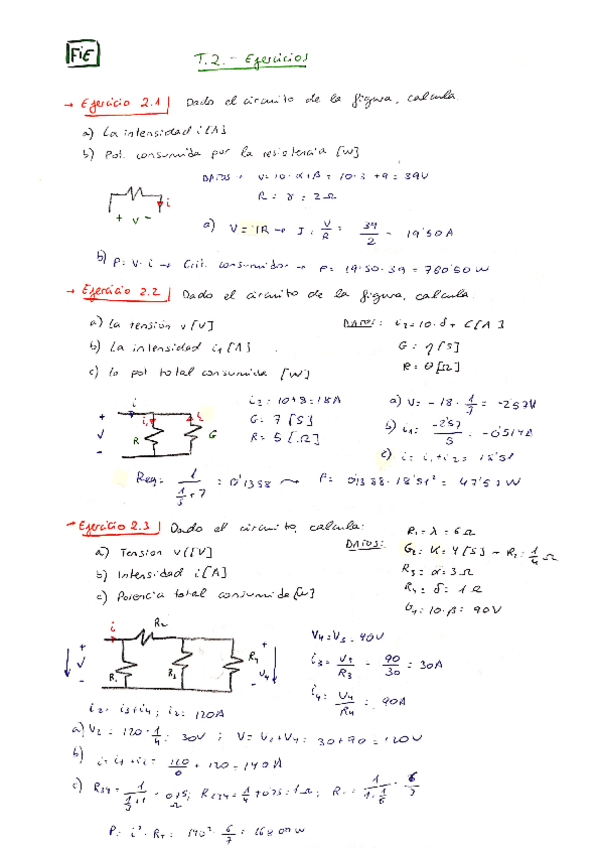 FiE
T.2.- Ejercicios
→ Ejercicio 2.1 Dado el circuito de la figura, calcula.
a) La intensidad i [A]
b) Pot. consumida por la resistencia [W]
DATOS → V = 10·α+β = 10·3+9 = 39V
R = γ = 2Ω
i
+ v -
a) V = IR → I = V/R = 39/2 = 19'50 A
b) P = V·i → Cir. consumidor → P = 19'50·39 = 760'50 W
→ Ejercicio 2.2 Dado el circuito de la figura, calcula.
a) La tensión v [V]
DATOS: i2 = 10·δ + [A]
b) La intensidad i1 [A]
G = η [S]
R = θ [Ω]
c) la pot total consumida [W]
i2 = 10+8 = 18A
G = 7 [S]
R = 5 [Ω]
i
+ v -
i1 R i2 G
a) V = -18·1/7 = -2'57V
b) i1 = -2'57/5 = -0'514A
c) i = i1+i2 = 18'51
Req = 1/(1/5+7) = 0'1388 → P = 0'1388·18'51² = 47'57 W
→ Ejercicio 2.3 Dado el circuito, calcula:
a) Tension v [V]
b) Intensidad i [A]
c) Potencia total consumida [W]
DATOS:
R1 = λ = 6Ω
G2 = K = 4 [S] → R2 = 1/4 Ω
R3 = α = 3Ω
R4 = δ = 1Ω
= 10·β = 90V
i R2
+ v - R1 R3 R4 + V4 -
i3 = = 90/30 = 30A
i4 = V4/R4 = 90A
i2 = i3+i4; i2 = 120A
a) V2 = 120·1/4 = 30V; V = V2+V4 = 30+90 = 120V
b) i = i1+i2 = + 120 = 140A
c) R34 = = 0'75 Ω; R234 = 1/4+0'75 = 1Ω; = 6/7
P = i²·RT = 140²·6/7 = W